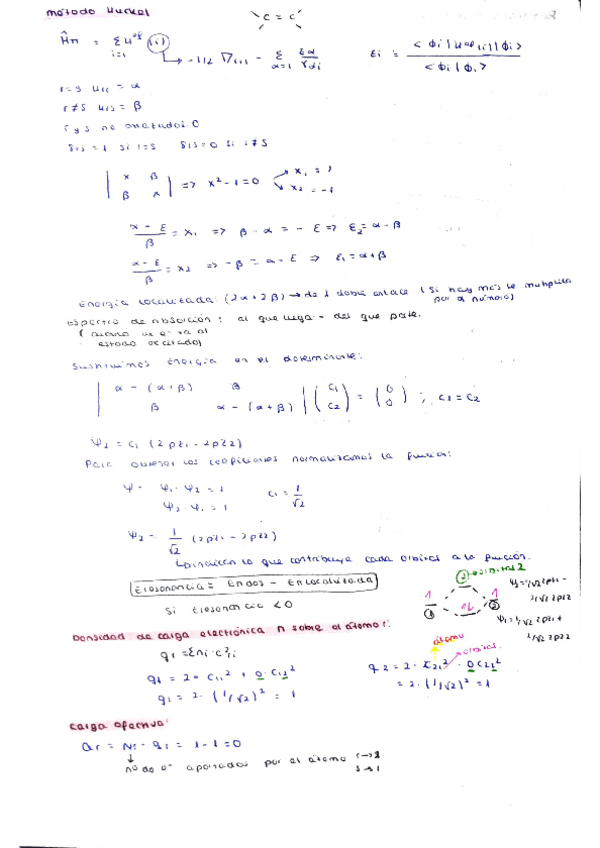 método Huckel
C = C
Ĥπ = Σ H^ef (i) → -1/2 ∇(i) - Σ Zα/rαi
i=1 α=1
εi = <ϕi|H^ef(i)|ϕi> / <ϕi|ϕi>
r=s Hrr = α
r≠s Hrs = β
r y s no enlazados: 0
δrs = 1 si r=s δrs = 0 si r≠s
| x β | => x² - 1 = 0 x₁ = 1
| β x | x₂ = -1
α - E / β = x₁ => β - α = - E => E₂ = α - β
α - E / β = x₂ => -β = α - E => E₁ = α + β
Energía localizada: (2α + 2β) → de 1 doble enlace (Si hay más se multiplica
por el número)
espectro de absorción: al que llega - del que parte.
estado excitado)
Sustituimos energía en el determinante:
| α - (α + β) β | (C₁) = (0) ; C₁ = C₂
| β α - (α + β) | (C₂) (0)
Ψ₂ = C₁ (2pz₁ - 2pz₂)
Para obtener los coeficientes normalizamos la función:
Ψ = Ψ₁ · Ψ₂ = 1 C₁ = 1/√2
Ψ₂ · Ψ₁ = 1
Ψ₂ = 1/√2 (2pz₁ - 2pz₂)
indican lo que contribuye cada orbital a la función.
Eresonancia = Edes - Elocalizada
Si Eresonancia < 0
orbital 2
Ψ₂ = 1/√2 2pz₁ -
1/√2 2pz2
Ψ₁ = 1/√2 2pz₁ +
1/√2 2pz2
Densidad de carga electrónica π sobre el átomo r:
qr = Σ ni · c²ri
q₁ = 2 · C₁₁² + 0 · C₁₂²
q₁ = 2 · (1/√2)² = 1
átomo
orbital
q₂ = 2 · C₂₁² · 0 C₂₂²
= 2 · (1/√2)² = 1
carga efectiva:
Qr = Nr - qr = 1 - 1 = 0
nº de e⁻ aportados por el átomo